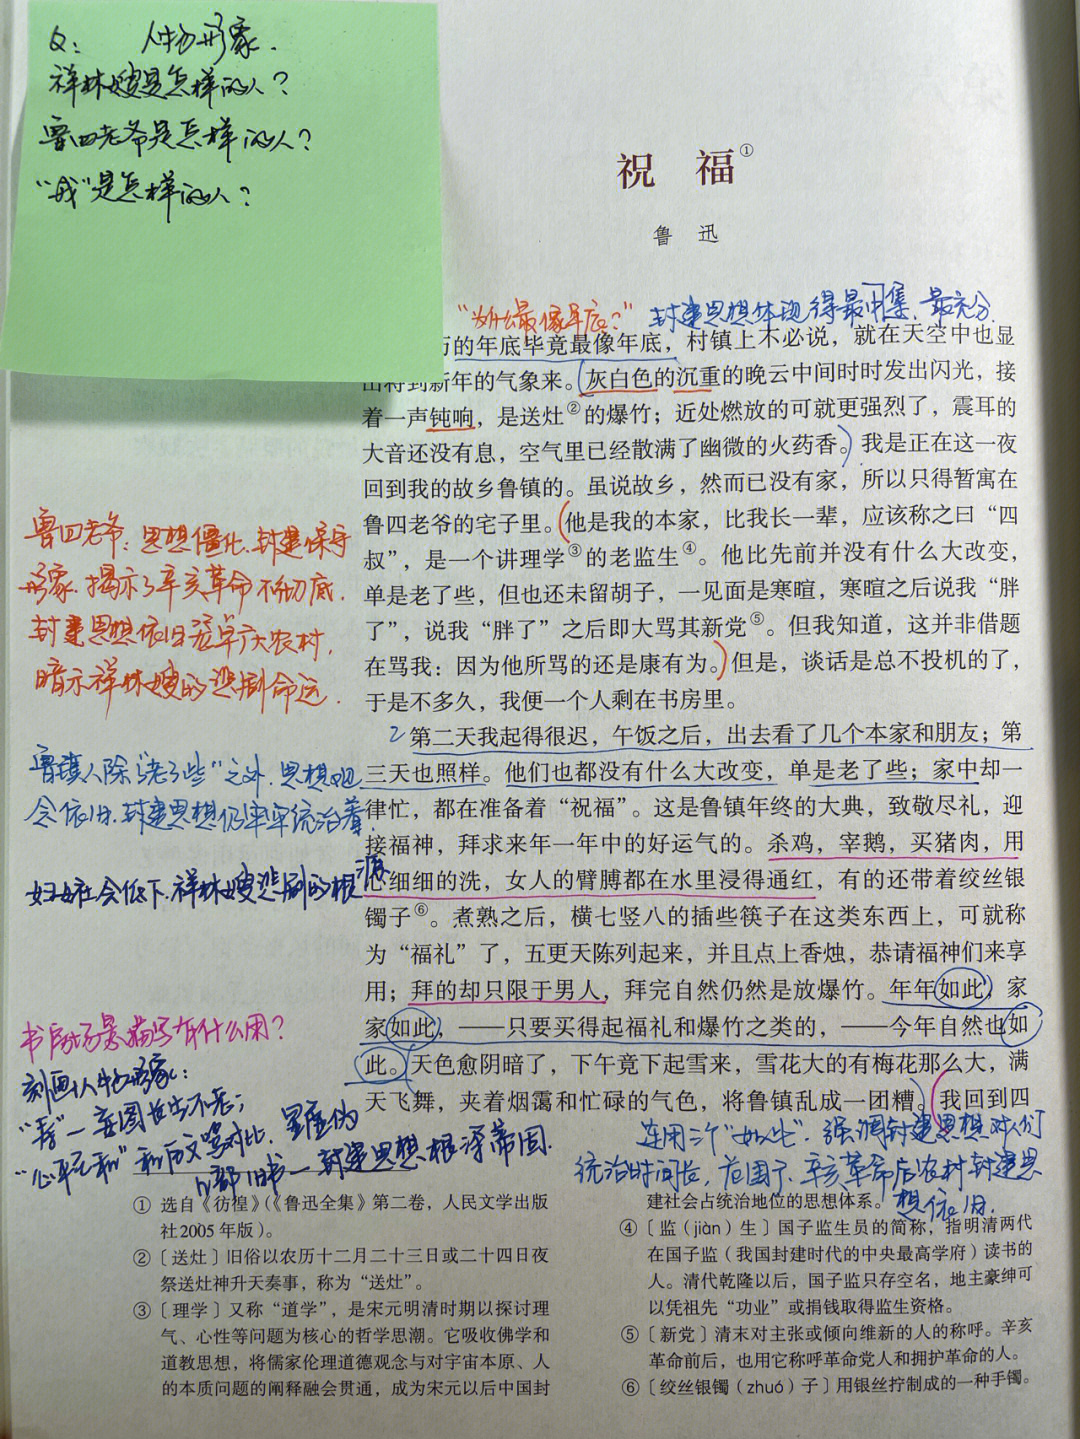 Q： 人物形象.
祥林嫂是怎样的人？
鲁四老爷是怎样的人？
“我”是怎样的人？
祝 福①
鲁 迅
“为什么最像年底？” 封建思想体现得最集中、最充分.
历的年底毕竟最像年底，村镇上不必说，就在天空中也显
出将到新年的气象来。灰白色的沉重的晚云中间时时发出闪光，接
着一声钝响，是送灶②的爆竹；近处燃放的可就更强烈了，震耳的
大音还没有息，空气里已经散满了幽微的火药香。我是正在这一夜
回到我的故乡鲁镇的。虽说故乡，然而已没有家，所以只得暂寓在
鲁四老爷的宅子里。他是我的本家，比我长一辈，应该称之曰“四
叔”，是一个讲理学③的老监生④。他比先前并没有什么大改变，
单是老了些，但也还未留胡子，一见面是寒暄，寒暄之后说我“胖
了”，说我“胖了”之后即大骂其新党⑤。但我知道，这并非借题
在骂我：因为他所骂的还是康有为。但是，谈话是总不投机的了，
于是不多久，我便一个人剩在书房里。
鲁四老爷：思想僵化、封建保守
形象.揭示了辛亥革命不彻底.
封建思想依旧笼罩广大农村,
暗示祥林嫂的悲剧命运.
2 第二天我起得很迟，午饭之后，出去看了几个本家和朋友；第
三天也照样。他们也都没有什么大改变，单是老了些；家中却一
律忙，都在准备着“祝福”。这是鲁镇年终的大典，致敬尽礼，迎
接福神，拜求来年一年中的好运气的。杀鸡，宰鹅，买猪肉，用
心细细的洗，女人的臂膊都在水里浸得通红，有的还带着绞丝银
镯子⑥。煮熟之后，横七竖八的插些筷子在这类东西上，可就称
为“福礼”了，五更天陈列起来，并且点上香烛，恭请福神们来享
用；拜的却只限于男人，拜完自然仍然是放爆竹。年年如此，家
家如此，——只要买得起福礼和爆竹之类的，——今年自然也如
此。天色愈阴暗了，下午竟下起雪来，雪花大的有梅花那么大，满
天飞舞，夹着烟霭和忙碌的气色，将鲁镇乱成一团糟。我回到四
鲁镇人除“老了些”之外.思想观
念依旧.封建思想仍牢牢统治着.
妇女社会低下.祥林嫂悲剧的根源
书房场景描写有什么用？
刻画人物形象：
“寿”—妄图长生不老；
“心平气和”和后文骂对比.显虚伪
几部旧书—封建思想根深蒂固.
连用三个“如此”.强调封建思想对人们
统治时间长，范围广.辛亥革命后农村封建思
想依旧.
① 选自《彷徨》（《鲁迅全集》第二卷，人民文学出版
社2005年版）。
②〔送灶〕旧俗以农历十二月二十三日或二十四日夜
祭送灶神升天奏事，称为“送灶”。
③〔理学〕又称“道学”，是宋元明清时期以探讨理
气、心性等问题为核心的哲学思潮。它吸收佛学和
道教思想，将儒家伦理道德观念与对宇宙本原、人
的本质问题的阐释融会贯通，成为宋元以后中国封
建社会占统治地位的思想体系。
④〔监（jiàn）生〕国子监生员的简称，指明清两代
在国子监（我国封建时代的中央最高学府）读书的
人。清代乾隆以后，国子监只存空名，地主豪绅可
以凭祖先“功业”或捐钱取得监生资格。
⑤〔新党〕清末对主张或倾向维新的人的称呼。辛亥
革命前后，也用它称呼革命党人和拥护革命的人。
⑥〔绞丝银镯（zhuó）子〕用银丝拧制成的一种手镯。